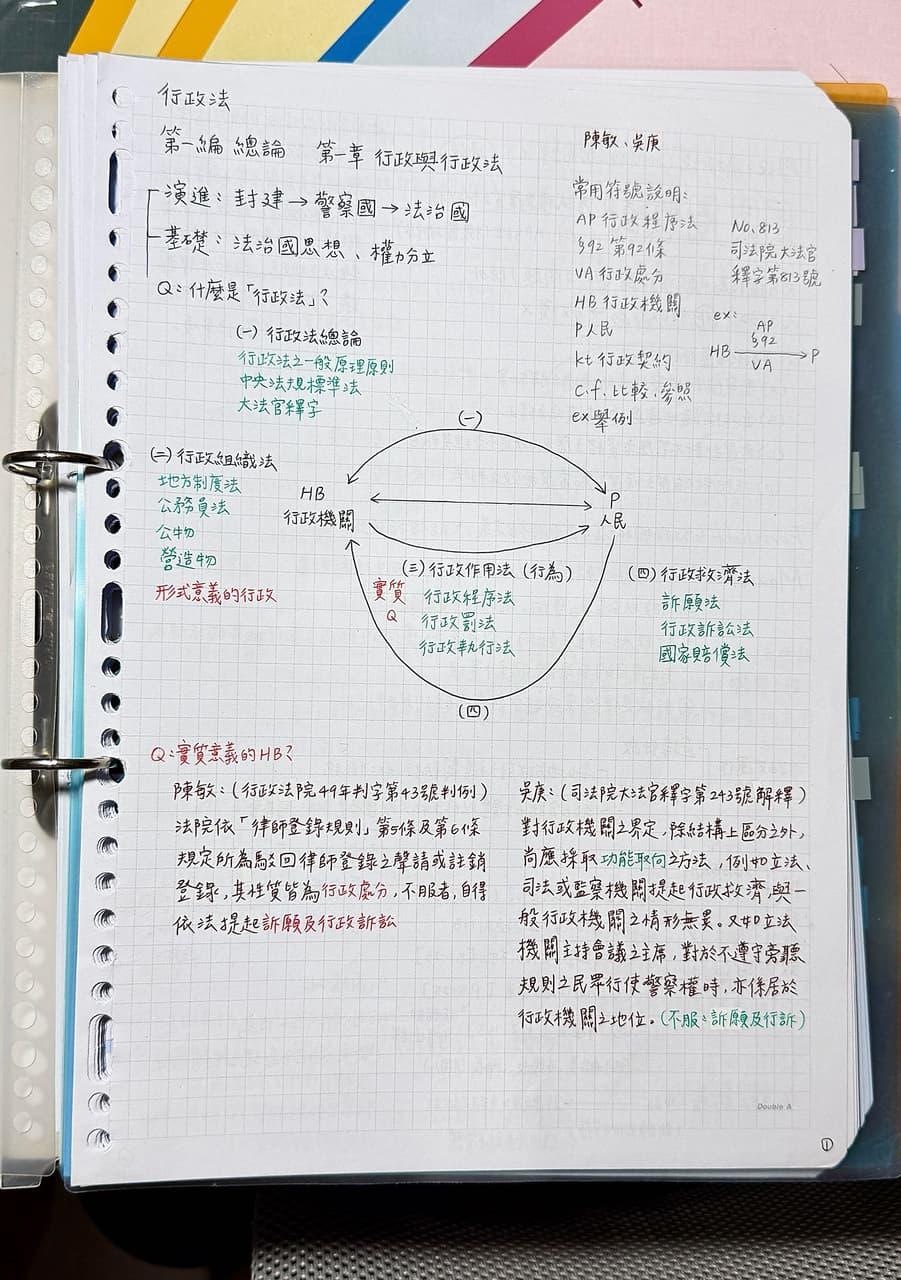 行政法
第一編 總論 第一章 行政與行政法
演進：封建→警察國→法治國
基礎：法治國思想、權力分立
Q：什麼是「行政法」？
陳敏、吳庚
常用符號說明：
AP 行政程序法
§92 第92條
VA 行政處分
HB 行政機關
P 人民
kt 行政契約
c.f. 比較、參照
ex 舉例
No.813
司法院大法官
釋字第813號
ex：
AP
§92
HB → P
VA
(一) 行政法總論
行政法之一般原理原則
中央法規標準法
大法官釋字
(二) 行政組織法
地方制度法
公務員法
公物
營造物
形式意義的行政
(一)
HB
行政機關
P
人民
(三) 行政作用法（行為）
實質
Q
行政程序法
行政罰法
行政執行法
(四) 行政救濟法
訴願法
行政訴訟法
國家賠償法
(四)
Q：實質意義的HB？
陳敏：（行政法院49年判字第43號判例）
法院依「律師登錄規則」第5條及第6條
規定所為駁回律師登錄之聲請或註銷
登錄，其性質皆為行政處分，不服者，自得
依法提起訴願及行政訴訟
吳庚：（司法院大法官釋字第243號解釋）
對行政機關之界定，除結構上區分之外，
尚應採取功能取向之方法，例如立法、
司法或監察機關提起行政救濟，與一
般行政機關之情形無異。又如立法
機關主持會議之主席，對於不遵守旁聽
規則之民眾行使警察權時，亦係居於
行政機關之地位。（不服：訴願及行訴）
Double A
①